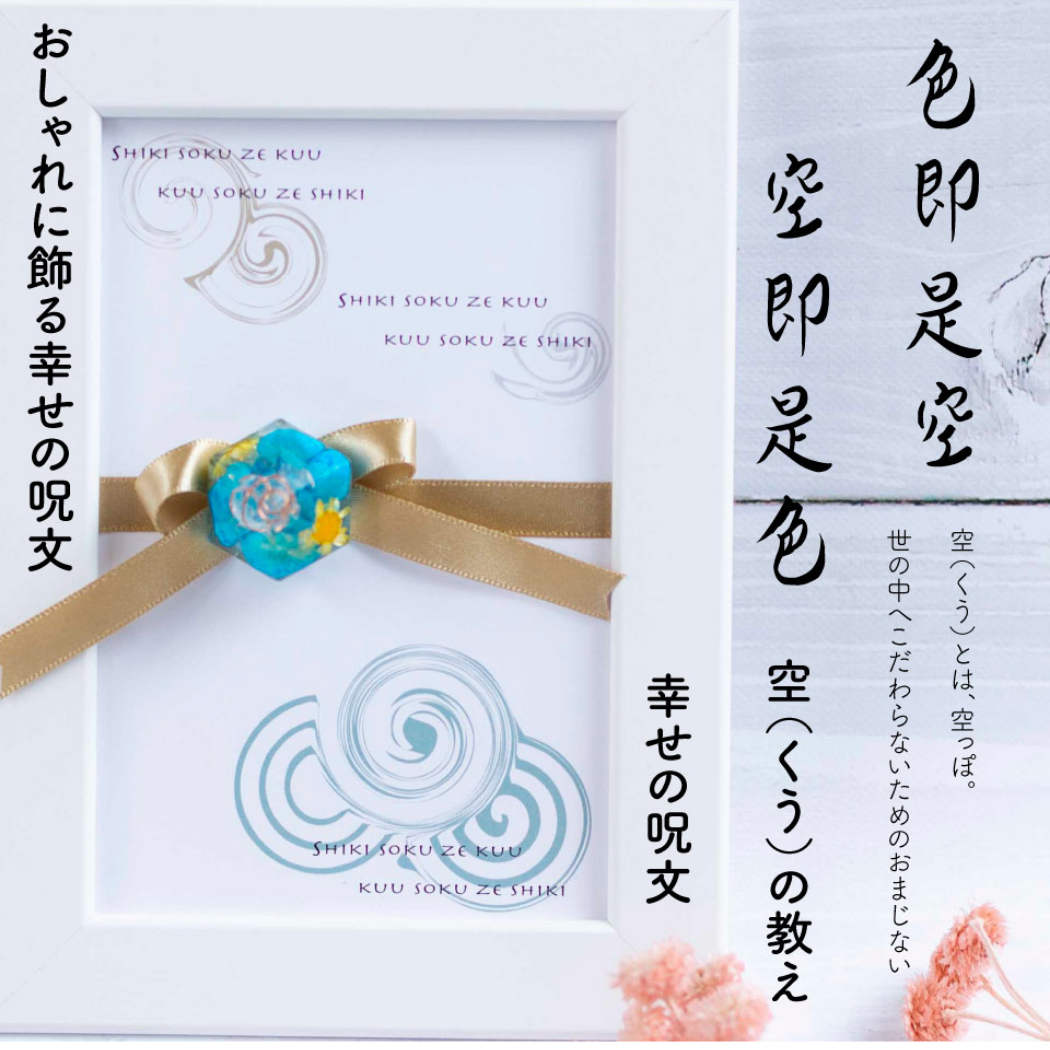 色即是空
空即是色
空(くう)とは、空っぽ。
世の中へこだわらないためのおまじない
空(くう)の教え
幸せの呪文
おしゃれに飾る幸せの呪文
SHIKI SOKU ZE KUU
KUU SOKU ZE SHIKI
SHIKI SOKU ZE KUU
KUU SOKU ZE SHIKI
SHIKI SOKU ZE KUU
KUU SOKU ZE SHIKI